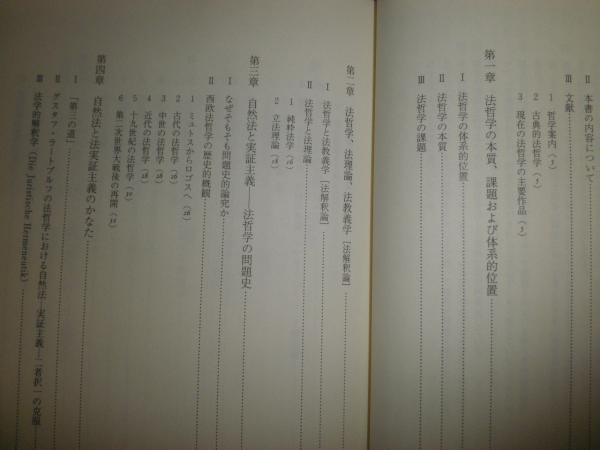 Ⅱ 本書の内容について
Ⅲ 文献
1 哲学案内
2 古典的法哲学
3 現在の法哲学の主要作品
第一章 法哲学の本質、課題および体系的位置
Ⅰ 法哲学の体系的位置
Ⅱ 法哲学の本質
Ⅲ 法哲学の課題
第二章 法哲学、法理論、法教義学[法解釈論]
Ⅰ 法哲学と法教義学[法解釈論]
Ⅱ 法哲学と法理論
1 純粋法学
2 立法理論
第三章 自然法と実証主義──法哲学の問題史
Ⅰ なぜそもそも問題史的論究か
Ⅱ 西欧法哲学の歴史的概観
1 ミュトスからロゴスへ
2 古代の法哲学
3 中世の法哲学
4 近代の法哲学
5 十九世紀の法哲学
6 第二次世界大戦後の再開
第四章 自然法と法実証主義のかなた
Ⅰ 「第三の道」
Ⅱ グスタフ・ラートブルフの法哲学における自然法―実証主義―「二者択一」の克服
Ⅲ 法学的解釈学(Die Juristische Hermeneutik)